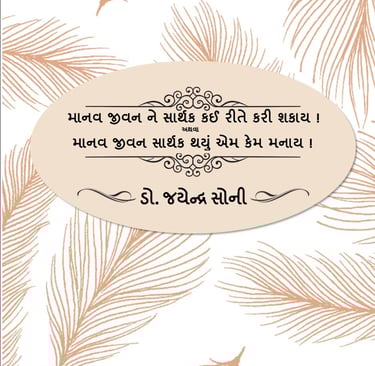 માનવ જીવન ને સાર્થક કઈ રીતે કરી શકાય !
અથવા
માનવ જીવન સાર્થક થયું એમ કેમ મનાય !
ડો. જયેન્દ્ર સોની